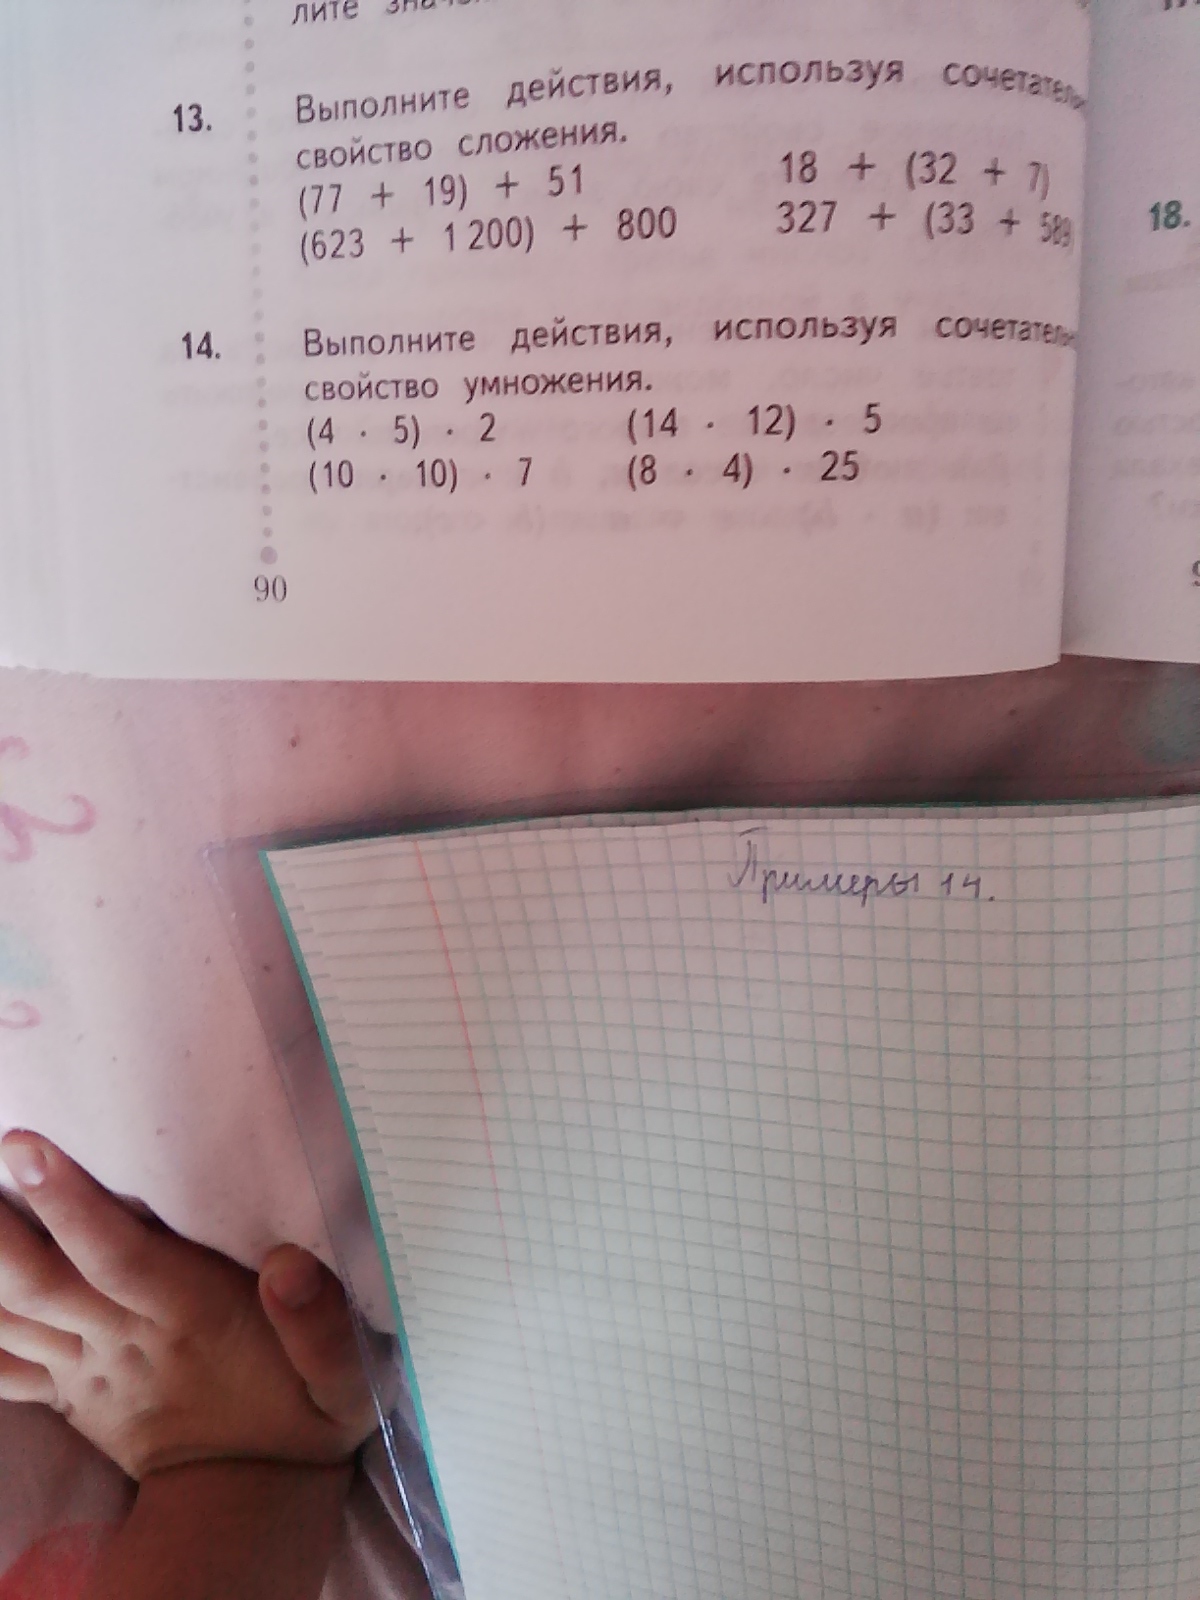 лите
13. Выполните действия, используя
свойство сложения.
(77 + 19) + 51 18 + (32 + 7)
(623 + 1 200) + 800 327 + (33 +
14. Выполните действия, используя
свойство умножения.
(4 · 5) · 2 (14 · 12) · 5
(10 · 10) · 7 (8 · 4) · 25
90
18.
Примеры 14.